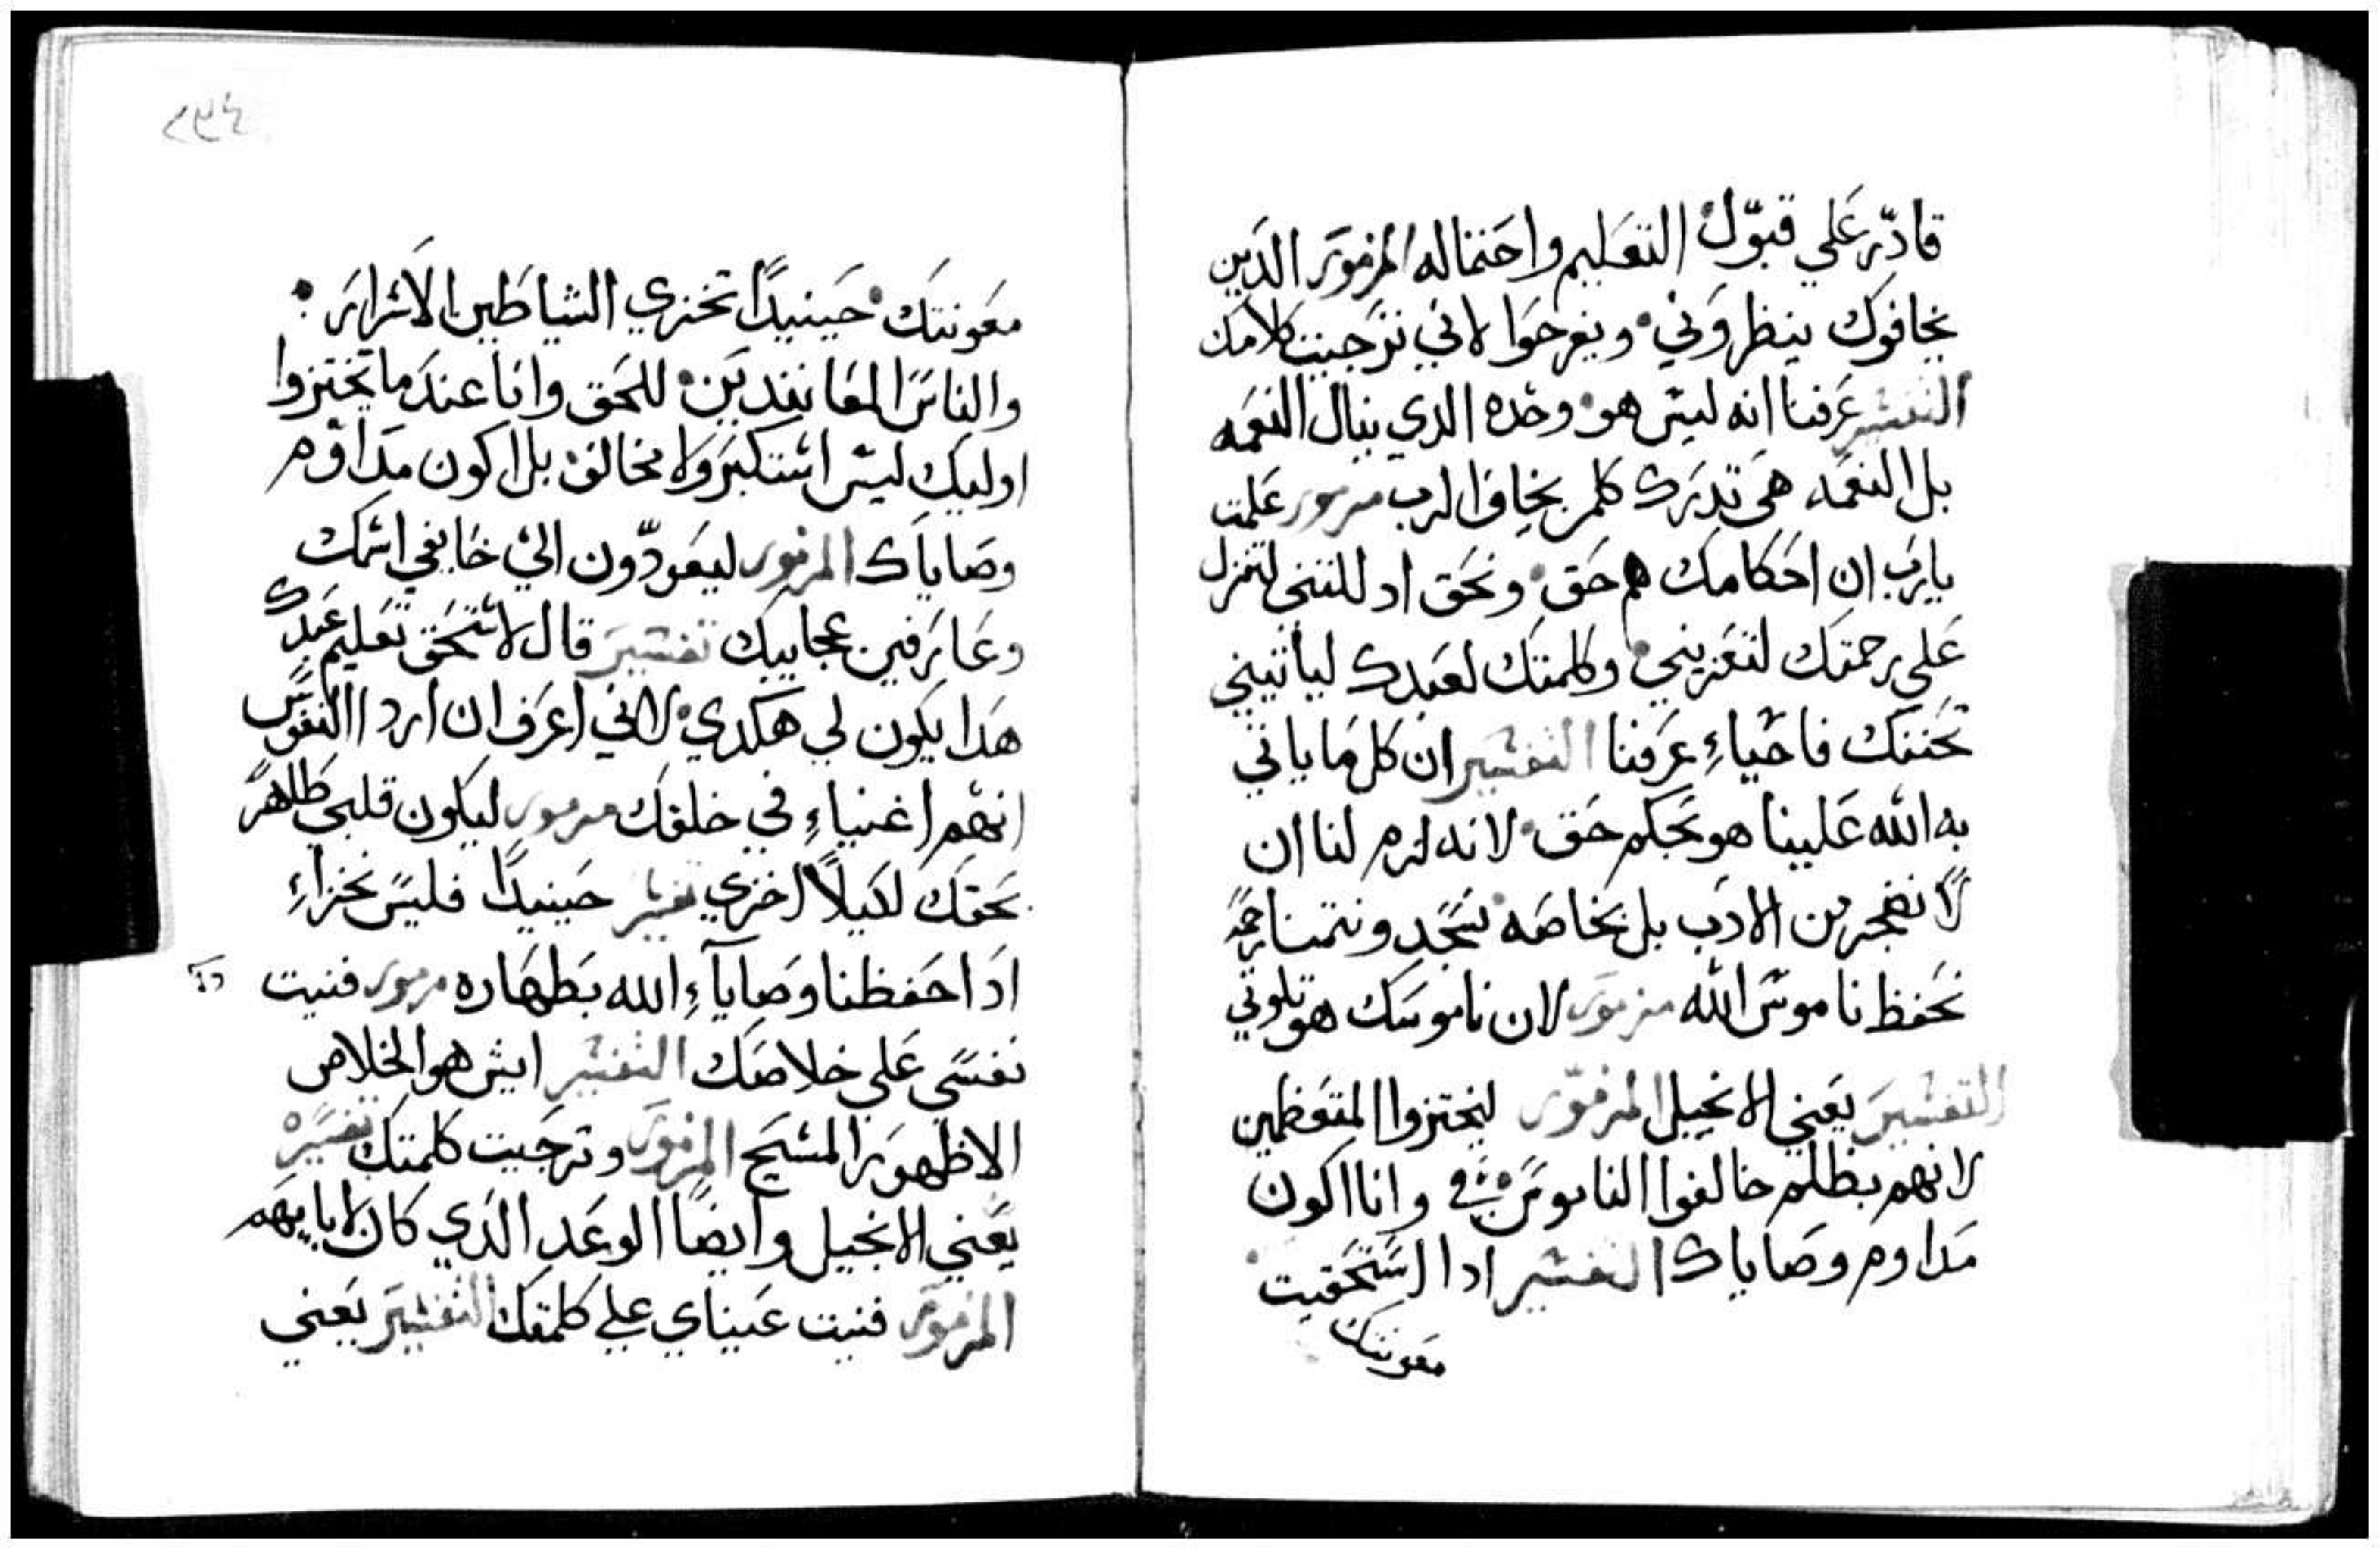 قادر علي قبول التعليم واحتماله المزمور الدين
يخافوك ينظروني ويفرحوا لاني ترجيت كلامك
التفسير عرفنا انه ليس هو وحده الدي ينال النعمه
بل النعمه هي تدرك كلمن يخاف الرب مزمور علمت
يارب ان احكامك هم حق وبحق ادللتني لتنزل
علي رحمتك لتعزيني وكلمتك لعبدك لياتيني
تحننك فاحياء عرفنا التفسير ان كل ما ياتي
به الله علينا هو بحكم حق لانه لزم لنا ان
لا نضجر من الادب بل بخاصه نسجد ونتمنا رحمة
نحفظ ناموس الله مزمور لان ناموسك هو تلاوتي
التفسير يعني الانجيل المزمور ليختزوا المتعظمين
لانهم بظلم خالفوا الناموس في وانا اكون
مداوم وصاياك التفسير ادا استحقيت
معونتك
٢٣٤
معونتك حينيدًا تخزي الشياطين الاشرار
والناس المعاندين للحق وانا عندما يختزوا
اوليك ليس استكبر ولا مخالف بل اكون مداوم
وصاياك المزمور ليعودون الي خايفي اسمك
وعارفين عجايبك تفسير قال لاستحق تعليم عبدك
هدا يكون لي هكدي لاني اعرف ان ارد االنفوس
انهم اغنياء في خلقك مزمور ليكون قلبي طاهرً
بحقك لكيلا اخزي تفسير حينيدًا فليس نخزاء
ادا حفظنا وصاياء الله بطهاره مزمور فنيت
نفسي علي خلاصك التفسير ايش هو الخلاص
الا ظهور المسيح المزمور وترجيت كلمتك تفسيره
يعني الانجيل وايضًا الوعد الدي كان لابايهم
المزمور فنيت عيناي علي كلمتك التفسير يعني